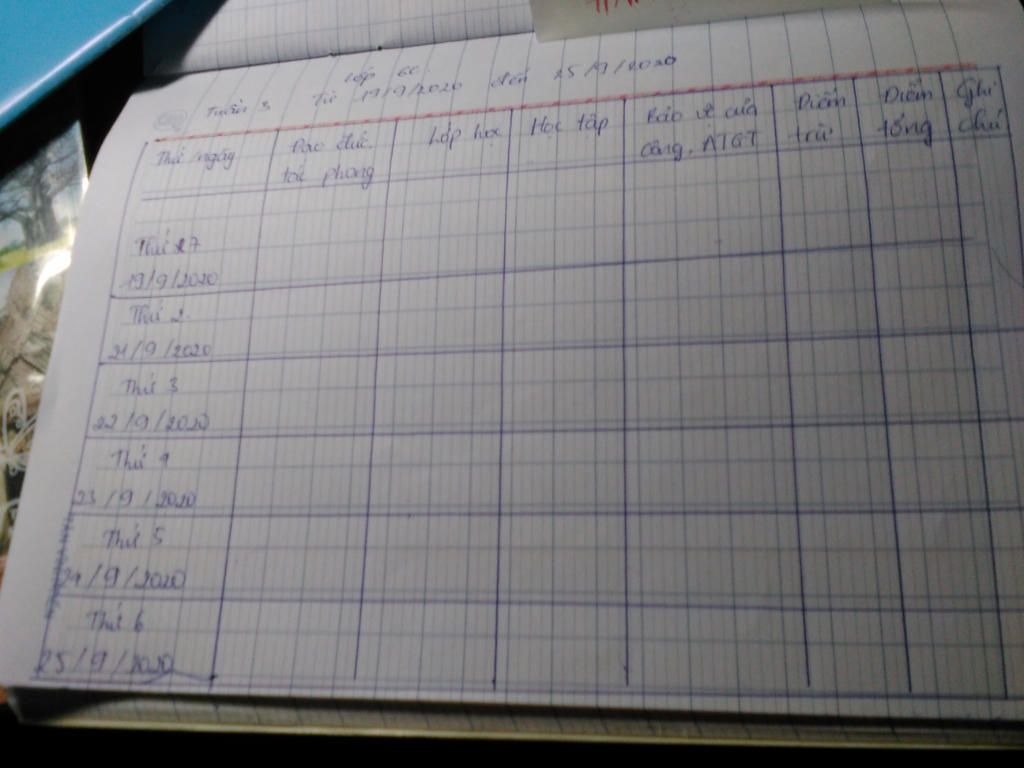 Lớp 6C
Tuần 3 Từ 19/9/2020 đến 25/9/2020
Thứ/ngày
Đạo đức,
tác phong
Lớp học
Học tập
Bảo vệ của
công, ATGT
Điểm
trừ
Điểm
tổng
Ghi
chú
Thứ 7
19/9/2020
Thứ 2
21/9/2020
Thứ 3
22/9/2020
Thứ 4
23/9/2020
Thứ 5
24/9/2020
Thứ 6
25/9/2020